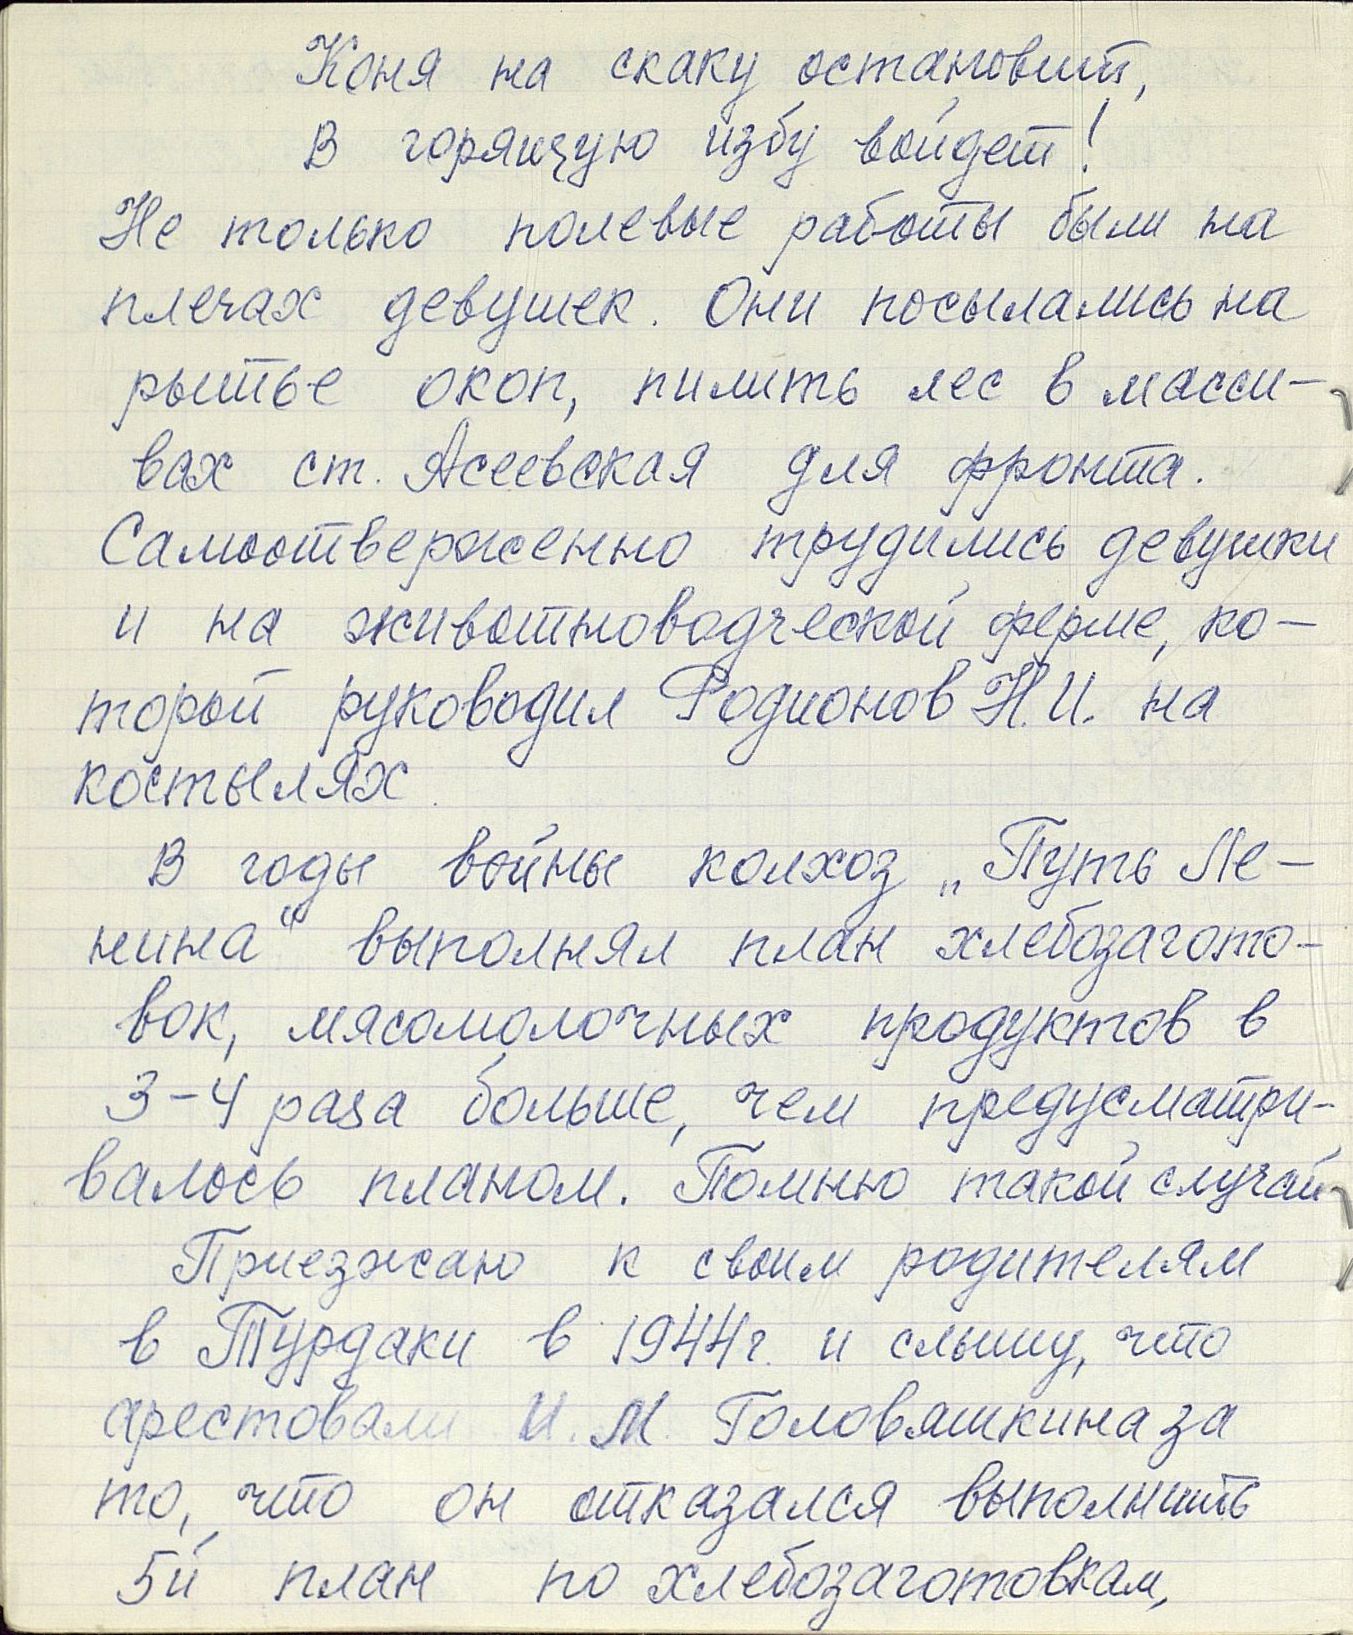 Коня на скаку остановит,
В горящую избу войдет!
Не только полевые работы были на
плечах девушек. Они посылались на
рытье окоп, пилить лес в масси-
вах ст. Асеевская для фронта.
Самоотверженно трудились девушки
и на животноводческой ферме, ко-
торой руководил Родионов Н.И. на
костылях.
В годы войны колхоз „Путь Ле-
нина“ выполнял план хлебозагото-
вок, мясомолочных продуктов в
3-4 раза больше, чем предусматри-
валось планом. Помню такой случай
Приезжаю к своим родителям
в Турдаки в 1944г. и слышу, что
арестовали И.М. Головяшкина за
то, что он отказался выполнить
5й план по хлебозаготовкам,